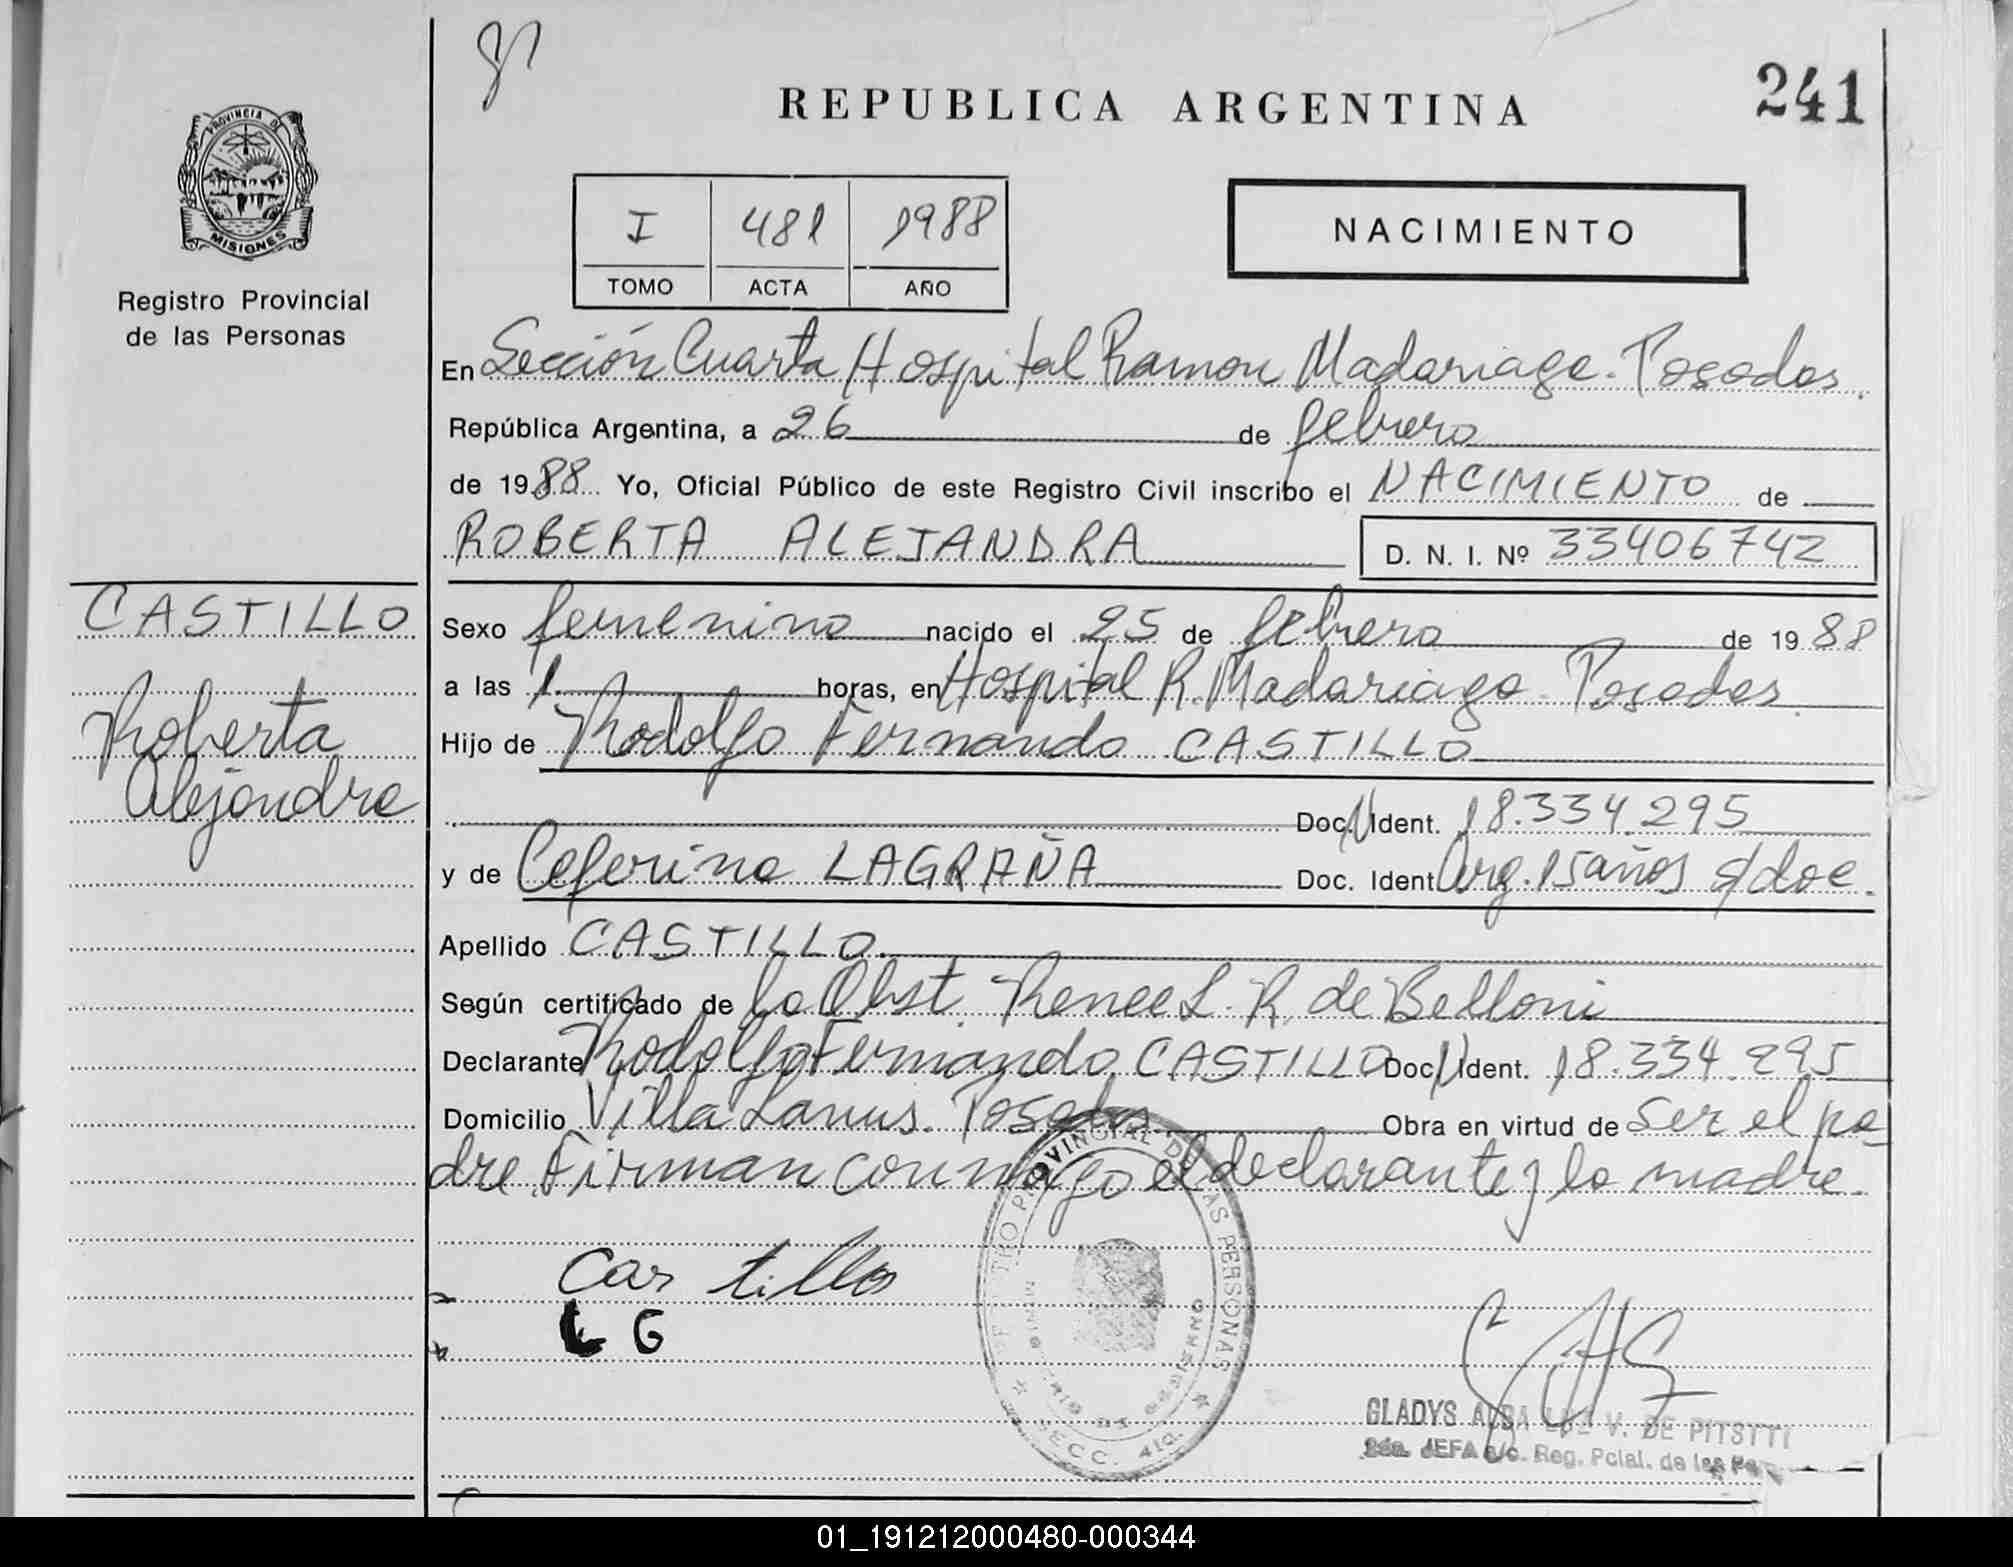 241
REPUBLICA ARGENTINA
PROVINCIA DE
MISIONES
Registro Provincial
de las Personas
I 481 1988
TOMO ACTA AÑO
NACIMIENTO
En Sección Cuarta Hospital Ramon Madariaga. Posadas.
República Argentina, a 26 de febrero
de 1988 Yo, Oficial Público de este Registro Civil inscribo el NACIMIENTO de
ROBERTA ALEJANDRA D. N. I. Nº 33406742
CASTILLO
Roberta
Alejandra
Sexo femenino nacido el 25 de febrero de 1988
a las 1 horas, en Hospital R. Madariaga Posadas
Hijo de Rodolfo Fernando CASTILLO
Doc. N Ident. 18.334.295
y de Ceferina LAGRAÑA Doc. Ident Arg. 15 años s/doc.
Apellido CASTILLO.
Según certificado de la Obst. Renee L. R. de Belloni
Declarante Rodolfo Fernando CASTILLO Doc N Ident. 18.334.295
Domicilio Villa Lanus. Posadas Obra en virtud de ser el pa-
dre. Firman conmigo el declarante y la madre.
Castillo
L G
REGISTRO PROVINCIAL DE LAS PERSONAS
MINISTERIO DE GOBIERNO
SECC. 4ta.
GLADYS ALBA LUZ V. DE PITSTTI
JEFA a/c. Reg. Pcial. de las Pe
01_191212000480-000344